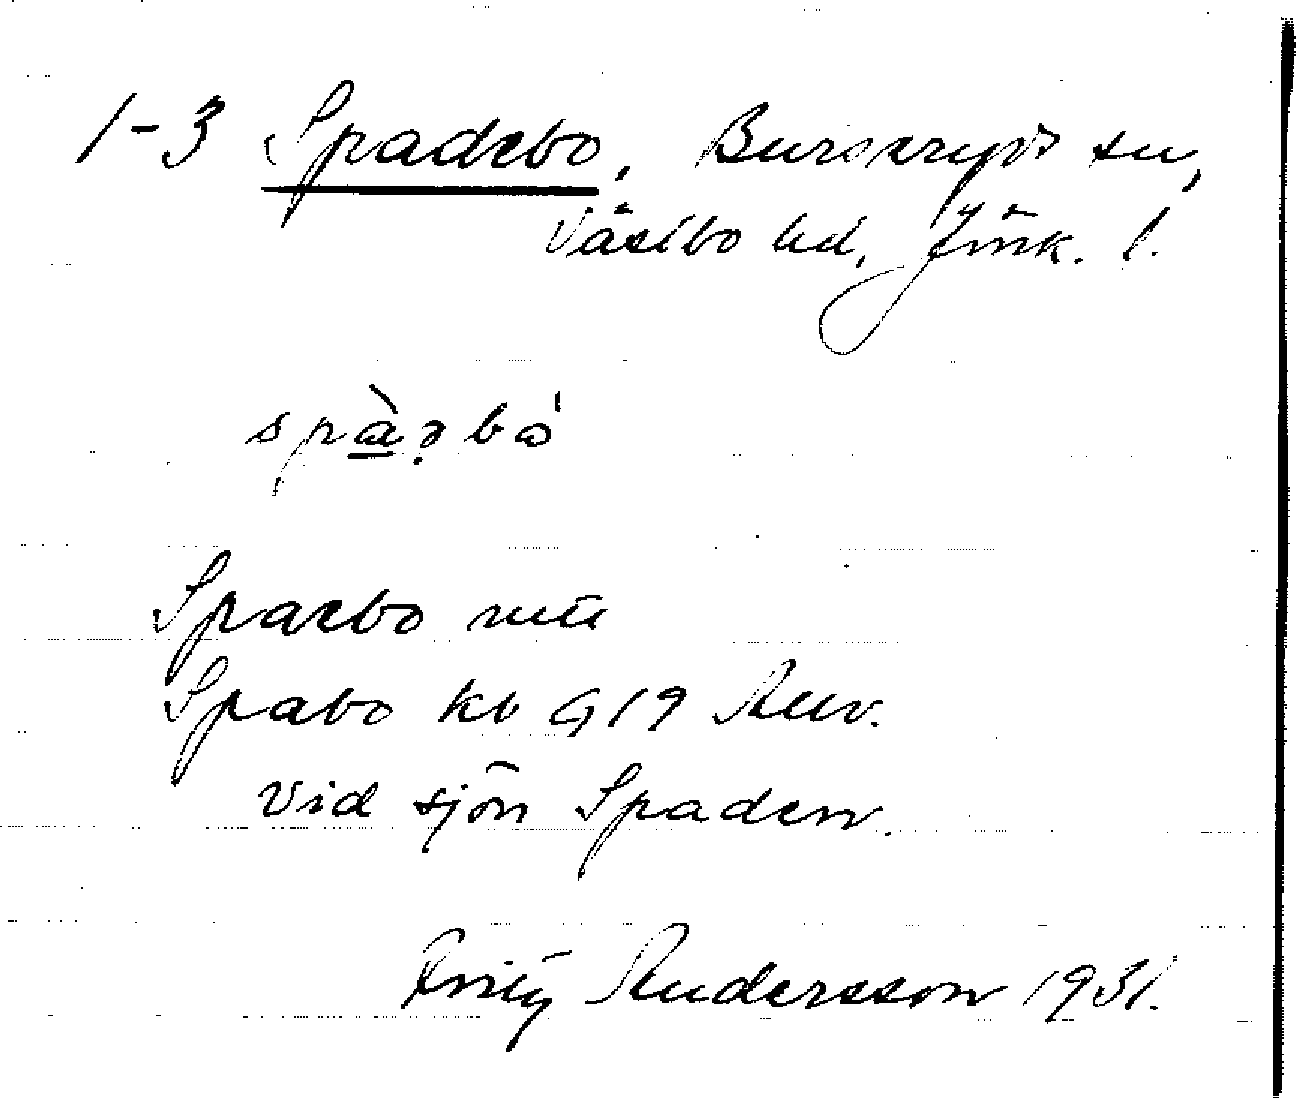 1-3 Spadebo, Burseryds sn,
Västbo hd, Jönk. l.
spàəbó
Spaebo mtl
Spabo kb G 19 Auv.
vid sjön Spaden.
Andersson 1931.